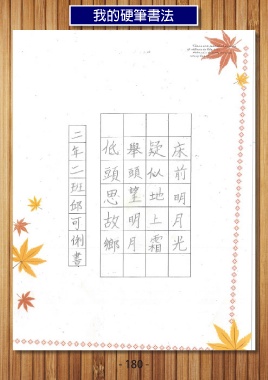 我的硬筆書法
床前明月光
疑似地上霜
舉頭望明月
低頭思故鄉
二年二班邱可俐書
- 180 -